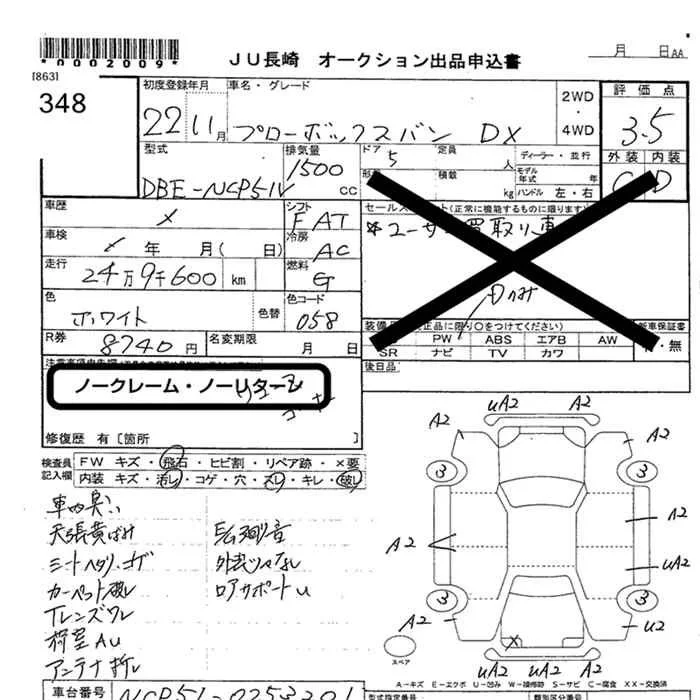 *0002009*
月 日AA
JU長崎 オークション出品申込書
[863]
348
初度登録年月
22 11月
車名・グレード
プローボックスバン DX
2WD
・
4WD
評価点
3.5
外装 内装
C D
型式
DBE-NCP51V
排気量
1500 CC
ドア
5
定員
人
ディーラー・並行
積数
kg
モデル年式 年
ハンドル 左・右
車歴
シフト
F AT
車検
年 月( 日)
冷房
AC
走行
24万9千600 km
燃料
G
色
ホワイト
色替
色コード
058
R券
8740円
名変期限
月 日
セールスポイント(正常に機能するものに限ります)
装備品
正品に限り○をつけてください)
新車保証書
PW ABS エアB AW
SR ナビ TV カワ
有・無
後日品
ノークレーム・ノーリターン
修復歴 有 [箇所 ]
検査員
記入欄
FW キズ・飛石・ヒビ割・リペア跡・×要
内装 キズ・汚レ・コゲ・穴・スレ・キレ・破レ
車内臭い
天張黄ばみ
シートヘタリ・コゲ
カーペット破レ
Tレンズワレ
荷室AU
アンテナ折レ
外装ジャナシ
ロアサポートU
A2 uA2 A2 A2
3 3
A2 A2
uA2
3 3
A2 U2
X
uA2 uA2 A2
スペア
A-キズ E-エクボ U-凹み W-補修跡 S-サビ C-腐食 XX-交換済
車台番号
NCP51-0253201
型式指定番号
類別区分番号